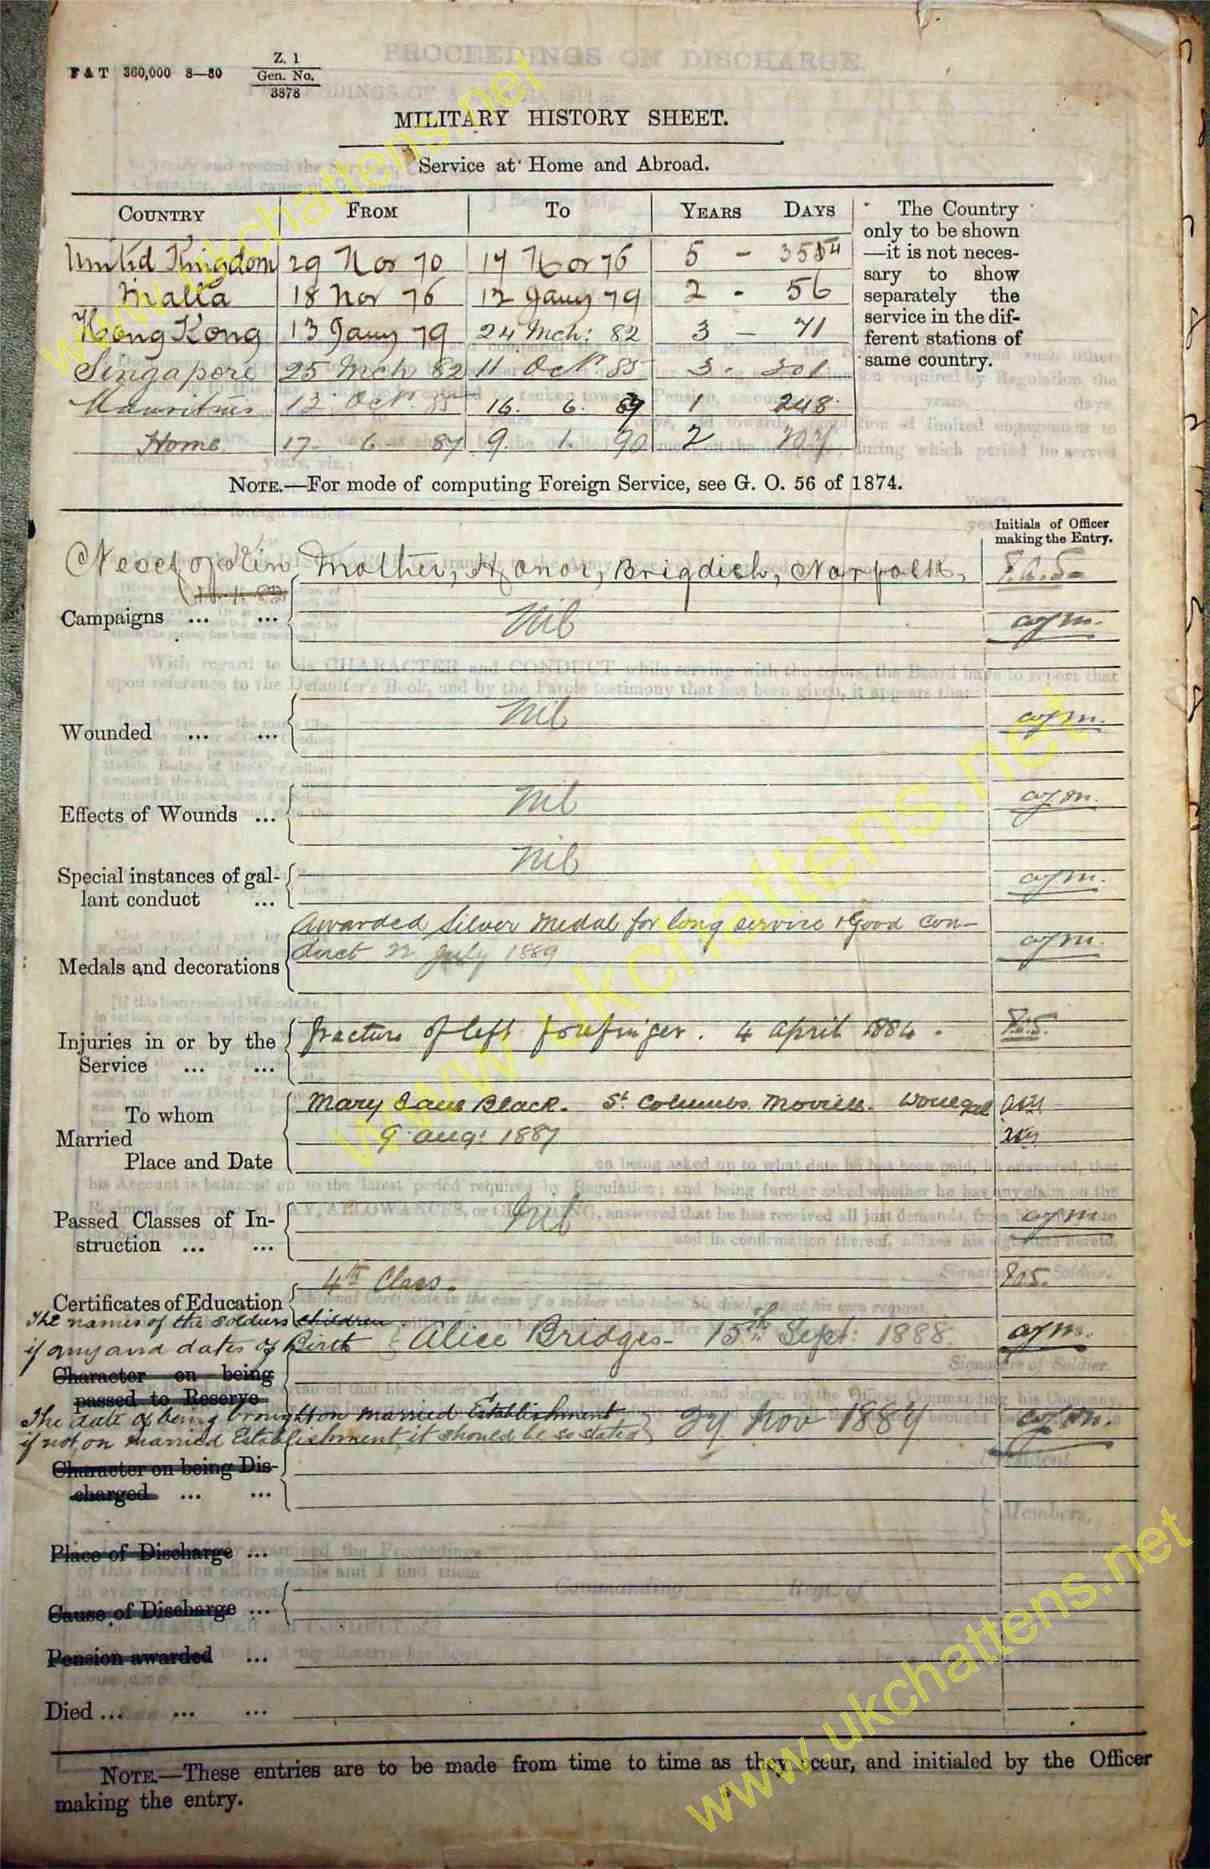 F & T 360,000 8—80
Z. 1
Gen. No.
3878
MILITARY HISTORY SHEET.
Service at Home and Abroad.
COUNTRY FROM TO YEARS DAYS
United Kingdom 29 Nov 70 17 Nov 76 5 - 354
Malta 18 Nov 76 12 Jany 79 2 - 56
Hong Kong 13 Jany 79 24 Mch: 82 3 - 71
Singapore 25 Mch 82 11 Oct. 85 3 - 201
Mauritius 12 Oct. 85 16. 6. 87 1 248
Home 17- 6- 87 9. 1. 90 2 207
The Country
only to be shown
—it is not neces-
sary to show
separately the
service in the dif-
ferent stations of
same country.
NOTE.—For mode of computing Foreign Service, see G. O. 56 of 1874.
Initials of Officer
making the Entry.
Next of Kin Mother, Honor, Brigdich, Norfolk,
Campaigns ... ... Nil
Wounded ... ... Nil
Effects of Wounds ... Nil
Special instances of gal- Nil
lant conduct ...
Awarded Silver Medal for long service & Good Con-
Medals and decorations duct 22 July 1889
Injuries in or by the fracture of left forefinger. 4 april 1884.
Service ... ...
To whom Mary Jane Black. St. Columbs Moville. Donegal
Married 9 augt 1887
Place and Date
Passed Classes of In- Nil
struction ... ...
4th Class.
Certificates of Education
The names of the soldiers children
if any and dates of Birth Alice Bridges- 15th Sept: 1888
Character on being
passed to Reserve
The date of being brought on married Establishment
if not on married Establishment, it should be so stated 27 Nov 1887
Character on being Dis-
charged ... ...
Place of Discharge ...
Cause of Discharge ...
Pension awarded ...
Died ... ... ...
NOTE.—These entries are to be made from time to time as they occur, and initialed by the Officer
making the entry.
www.ukchattens.net
www.ukchattens.net
www.ukchattens.net